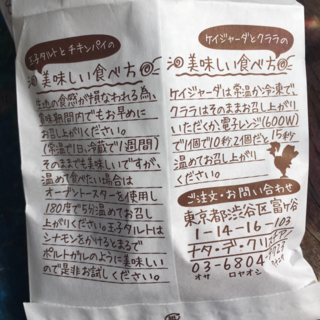 王子タルトとチキンパイの
美味しい食べ方
生地の食感が損なわれる為、
賞味期間内でもお早めに
お召し上がりください。
(常温で1日、冷蔵で1週間)
そのままでも美味しいですが、
温めて食べたい場合は
オーブントースターを使用し
180度で5分温めてお召し
上がりください。王子タルトは
シナモンをかけるとまるで
ポルトガルのように美味しい
ので是非お試しください。
ケイジャーダとクララの
美味しい食べ方
ケイジャーダは常温か冷凍で、
クララはそのままお召し上がり
いただくか、電子レンジ(600W)
で1個で10秒、2個だと15秒
温めてお召し上がり
ください。
ご注文・お問い合わせ
東京都渋谷区富ヶ谷
1-14-16-103
ナタ・デ・クリスチアノ
03-6804-9723
オサ ロヤオシ